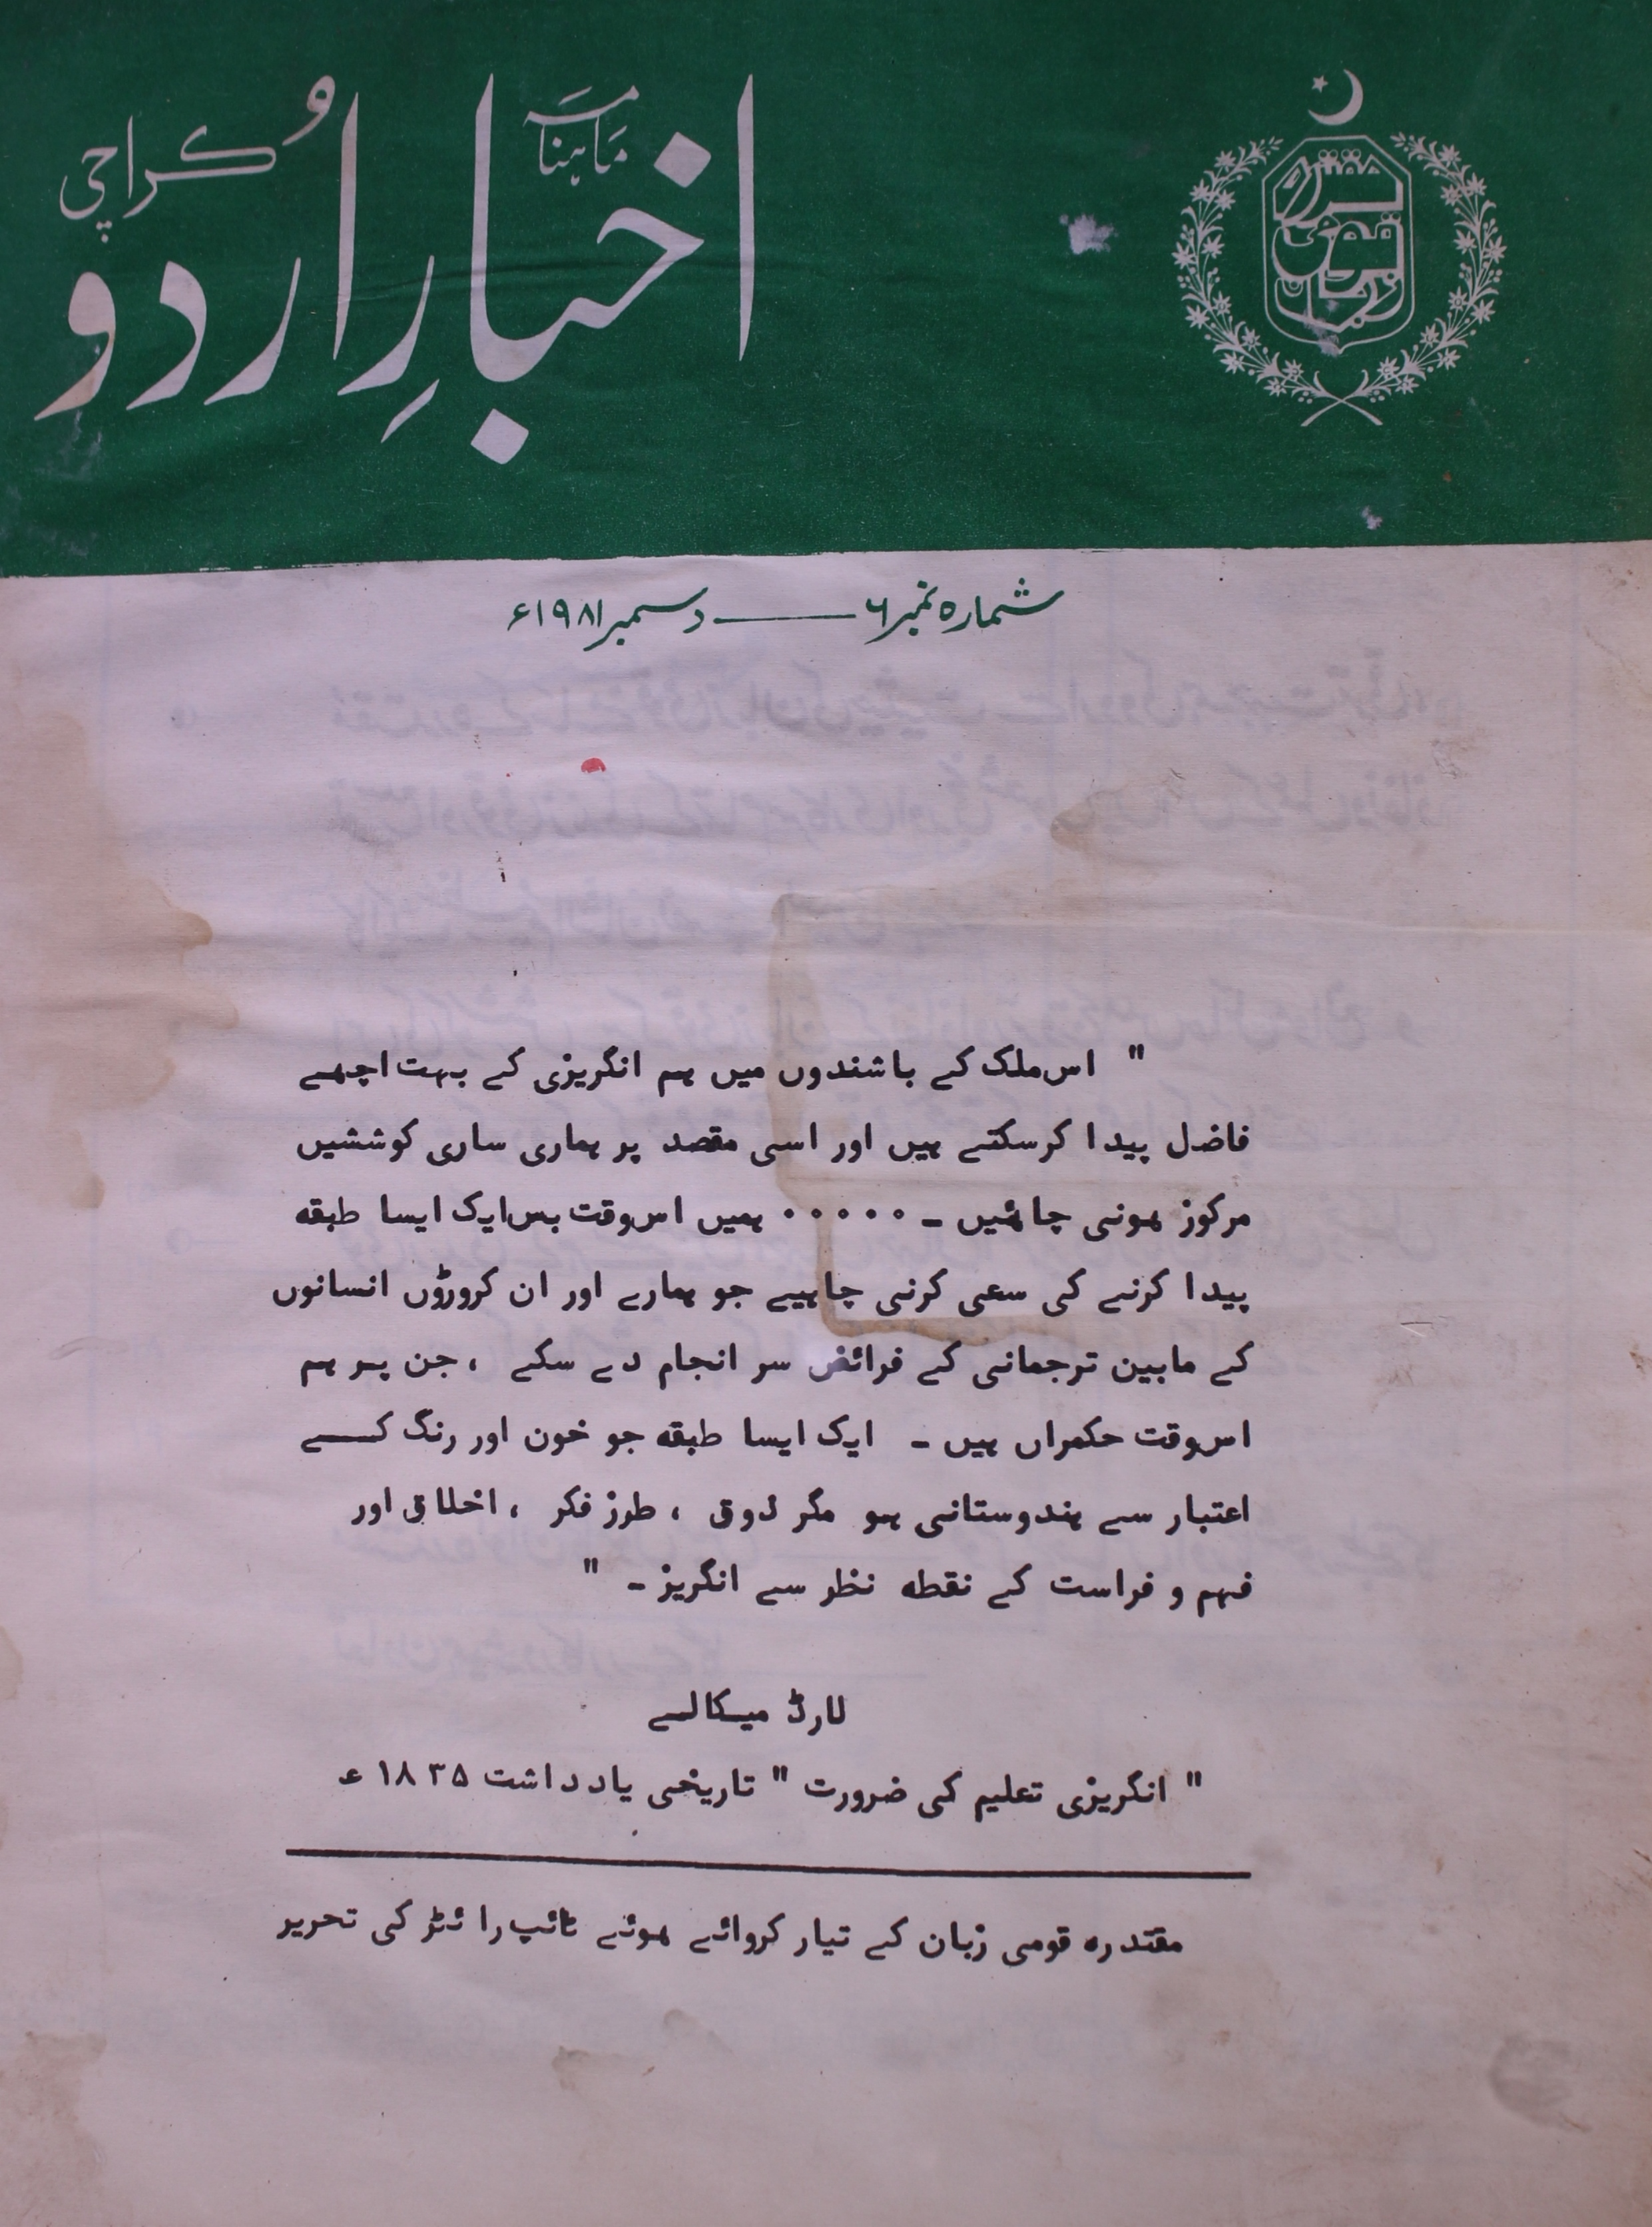 ماہنامہ
اخبارِ اردو
کراچی
مقتدرہ
قومی
زبان
شمارہ نمبر ۶ ــــــ دسمبر ۱۹۸۱ء
" اس ملک کے باشندوں میں ہم انگریزی کے بہت اچھے
فاضل پیدا کرسکتے ہیں اور اسی مقصد پر ہماری ساری کوششیں
مرکوز ہونی چاہئیں ۔ ۰۰۰۰۰ ہمیں اس وقت بس ایک ایسا طبقہ
پیدا کرنے کی سعی کرنی چاہیے جو ہمارے اور ان کروڑوں انسانوں
کے مابین ترجمانی کے فرائض سر انجام دے سکے ، جن پر ہم
اس وقت حکمراں ہیں ۔ ایک ایسا طبقہ جو خون اور رنگ کے
اعتبار سے ہندوستانی ہو مگر ذوق ، طرز فکر ، اخلاق اور
فہم و فراست کے نقطہ نظر سے انگریز ۔ "
لارڈ میکالے
" انگریزی تعلیم کی ضرورت " تاریخی یادداشت ۱۸۳۵ ء
مقتدرہ قومی زبان کے تیار کروائے ہوئے ٹائپ رائٹر کی تحریر